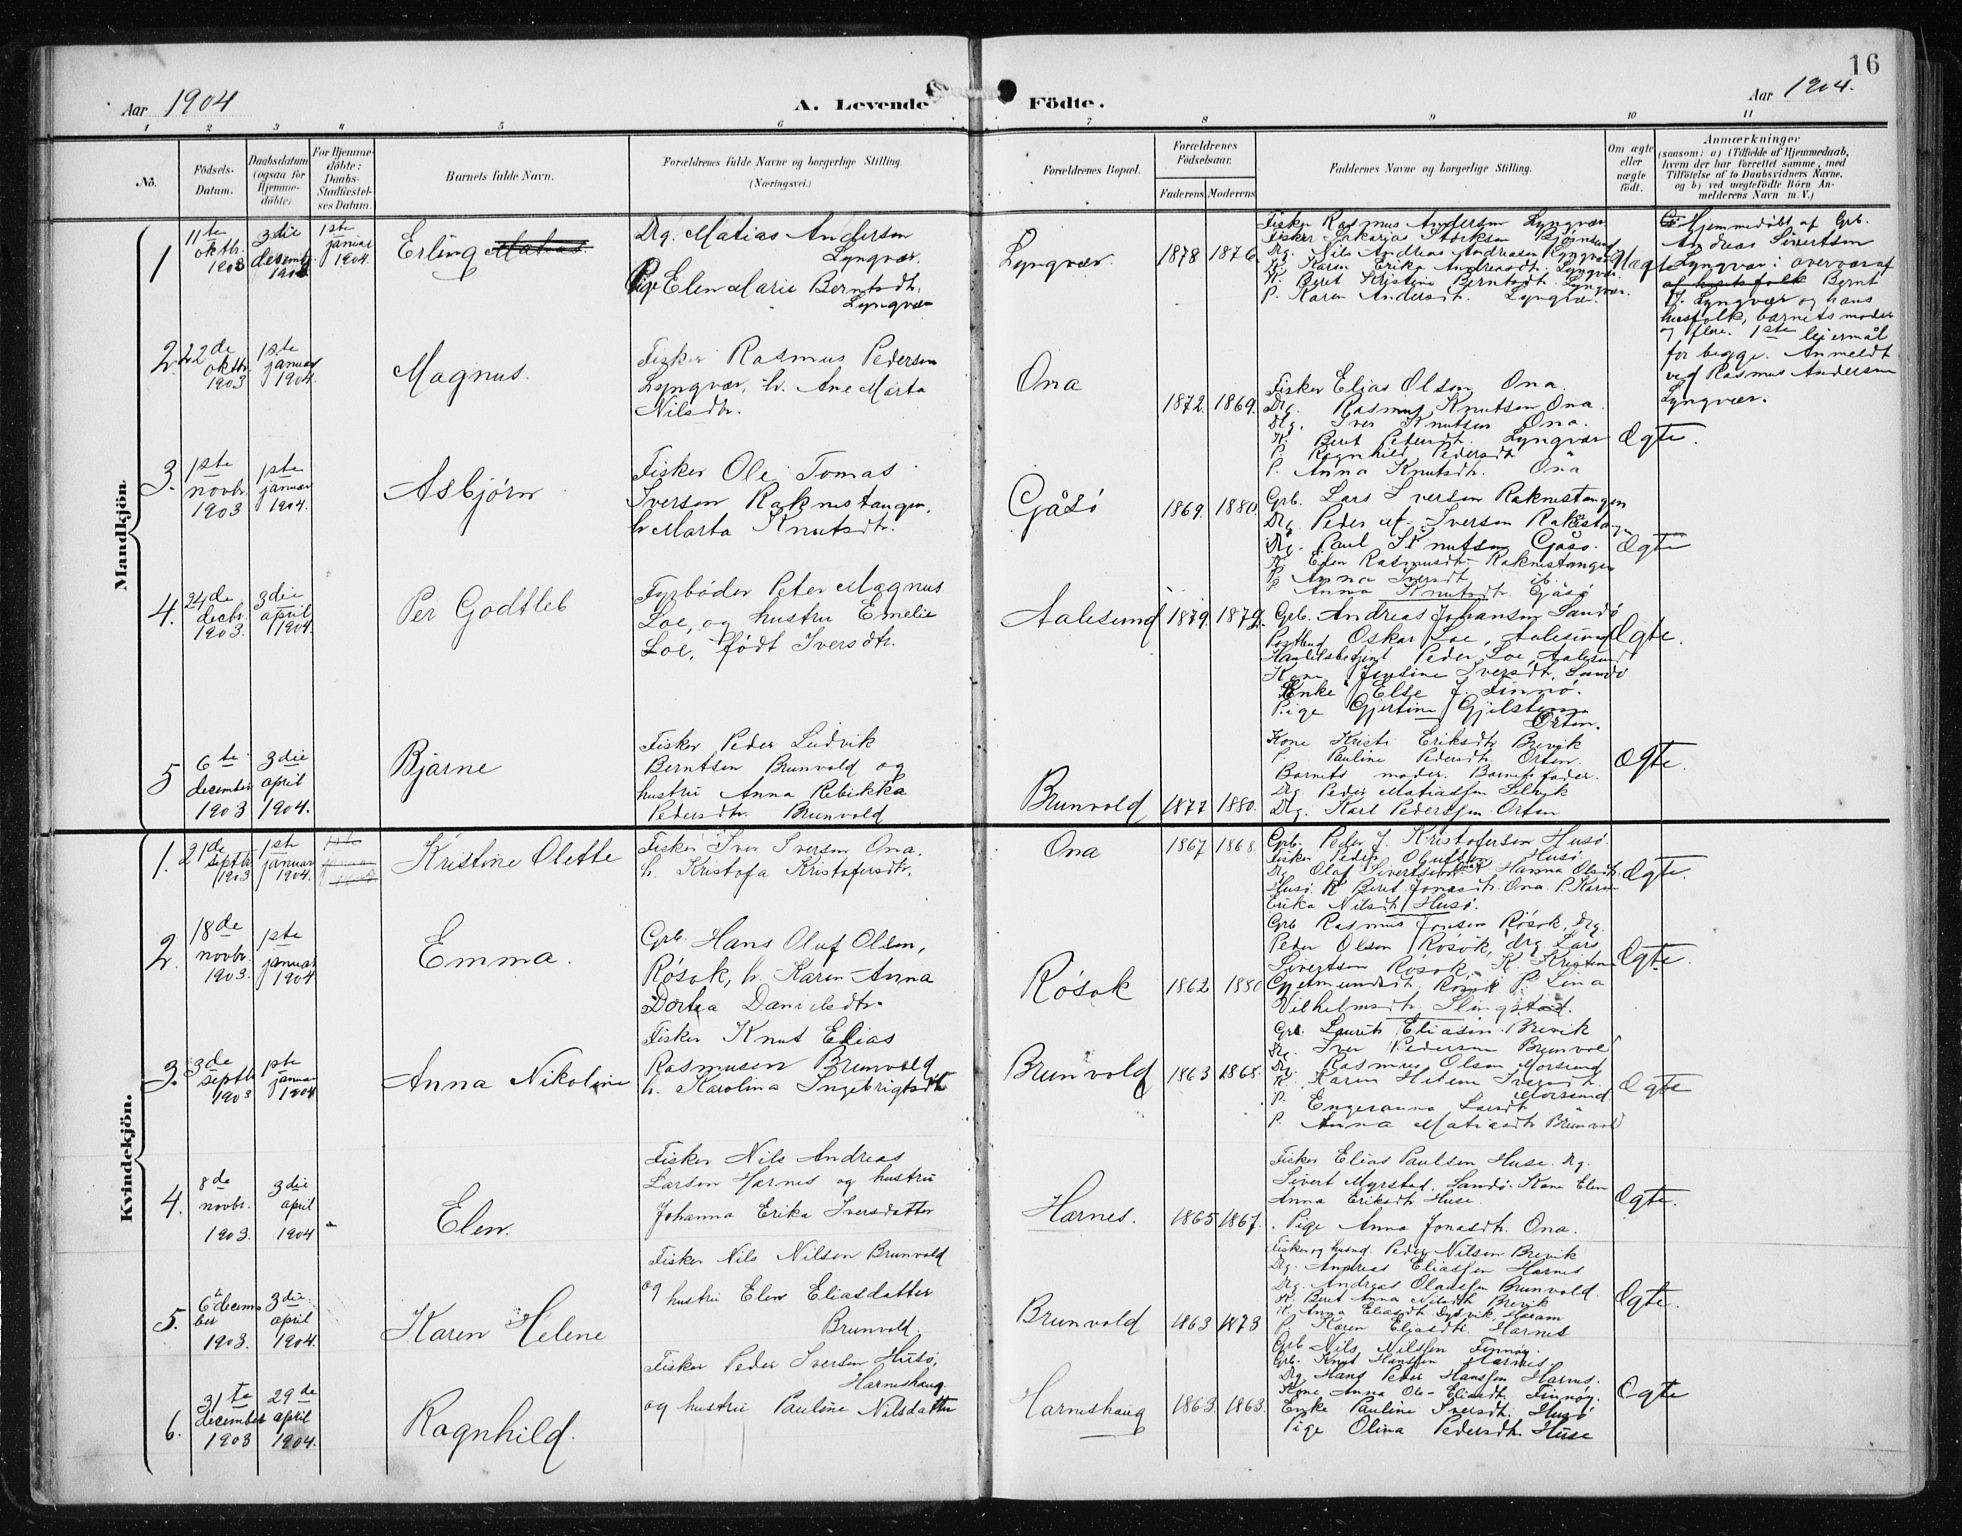 16
Aar 1904
A. Levende Födte.
Aar 1904.
1 2 3 4 5 6 7 8 9 10 11
No.
Födsels-
Datum.
Daabsdatum
(ogsaa for
Hjemme-
döbte).
For Hjemme-
döbte:
Daabs-
Stadfæstel-
ses Datum.
Barnets fulde Navn.
Forældrenes fulde Navne og borgerlige Stilling.
(Næringsvei.)
Forældrenes Bopæl.
Forældrenes
Födselsaar.
Faderens Moderens
Faddernes Navne og borgerlige Stilling.
Om ægte
eller
uægte
födt.
Anmærkninger
(saasom: a) i Tilfælde af Hjemmedaab,
hvem der har forrettet samme, med
Tilföielse af to Daabsvidners Navne,
og b) ved uægtefödte Börn An-
melderens Navn m. V.)
Mandkjön.
1
11te
oktbr.
1903
3die
desemb.
1903
1ste
januar
1904.
Erling Matias
Drg. Matias Andersen
Lyngvær.
Pige Elen Marie Berntsdtr.
Lyngvær
Lyngvær.
1878 1876.
Fisker Rasmus Andersen Lyngvær
Drg. Nils Andreas Andreasen Lyngvær
K. Karen Erika Andreasdt. Lyngvær
K. Beret Kristine Berntsdt. Lyngvær.
P. Karen Andersdt. Lyngvær.
Uægte
Hjemmedöbt af Grb.
Andreas Sivertsen
Lyngvær i overvær af
af husfolk Bernt
J. Lyngvær og hans
husfolk, barnets moder
og flere. 1ste leiermål
for begge. Anmeldt
ved Rasmus Andersen
Lyngvær.
2.
22de
oktbr.
1903
1ste
januar
1904.
Magnus.
Fisker Rasmus Pedersen
Lyngvær, h. Ane Marta
Nilsdtr.
Ona
1872. 1869.
Fisker Elias Olsen Ona.
Drg. Rasmus Knutsen Ona.
Drg. Iver Knutsen Ona.
K. Beret Pedersdt. Lyngvær
P. Ragnhild Pedersdt. "
P. Anna Knutsdt. Ona
Ægte.
3.
1ste
novbr.
1903
1ste
januar
1904.
Asbjørn
Fisker Ole Tomas
Iversen Raknestangen,
h. Marta Knutsdt.
Gåsø
1869. 1880.
Grb. Lars Iversen Raknestangen
Drg. Peder M. Iversen Raknestangen
Drg. Paul Knutsen Gåsø.
K. Elen Rasmusdt. Raknestangen
P. Anna Iversdt. ib.
P. Anna Knutsdt. Gåsø
Ægte
4.
24de
decbr.
1903.
3die
april
1904.
Per Godtleb
Fyrbøder Peter Magnus
Loe, og hustru Emelie
Loe, født Iversdtr.
Aalesund
1879. 1879.
Grb. Andreas Johansen Sandø
Postbud Oskar Loe, Aalesund
Handelsbetjent Peder Loe, Aalesund
Kone Jensine Iversdt. Sandø
Enke Else J. Finnø.
Pige Gjertine Gjelstenn
Orten.
Ægte.
5
6te
december
1903
3die
april
1904.
Bjarne
Fisker Peder Ludvik
Berntsen Brunvold og
hustru Anna Rebikka
Pedersdtr. Brunvold
Brunvold
1877 1880.
Kone Kristi Eriksdtr Brevik
P. Pauline Pedersdt. Orten.
Barnets moder. Barnets fader.
Drg. Peder Matiassen Selvik
Drg. Karl Pedersen Orten
Ægte.
Kvindekjön.
1.
21de
septbr.
1903
1ste
januar
1904.
1ste
januar
1904
Kristine Olette
Fisker Iver Iversen Ona.
h. Kristofa Kristofersdtr.
Ona
1867 1868.
Grb. Peder J. Kristofersen Husø.
Fisker Peder Olufsen Husø.
Drg. Olaf Sivertsen K. Hanna Olsdt.
Husø. K. Beret Jonasdt. Ona. P. Karen
Erika Nilsdt. Husø.
Ægte.
2.
18de
novbr.
1903.
1ste
januar
1904
Emma.
Grb. Hans Oluf Olsen,
Røsok, h. Karen Anna
Dortea Danielsdtr.
Røsok
1862 1880
Grb Rasmus Jonsen Røsok, Drg.
Peder Olsen Røsok, drg. Lars
Sivertsen Røsok, K. Kristine
Gjetmundsdt. Røsok P. Lina
Vilhelmsdt. Slingstad.
Ægte.
3.
3de
septbr
1903
1ste
januar
1904
Anna Nikoline
Fisker Knut Elias
Rasmusen Brunvold
h. Karolina Ingebrigtsdt
Brunvold
1863 1868.
Grb. Laurits Eliasen Brevik
Drg. Iver Pedersen Brunvold
Drg. Rasmus Olsen Morsund
K. Karen Helene Iversdt.
Morsund
P. Engeranna Larsdt. "
P. Anna Matiasdt. Brunvold
Ægte
4.
8de
novbr.
1903.
3die
april
1904
Elen.
Fisker Nils Andreas
Larsen Harnes og hustru
Johanna Erika Iversdatter
Harnes.
1865 1867.
Fisker Elias Paulsen Huse. Drg.
Sivert Myrstad, Sandø. Kone Elen
Anna Eriksdt. Huse.
Pige Anna Jonasdt. Ona.
Ægte.
5.
6te decem-
ber
1903.
3die
april
1904.
Karen Helene
Fisker Nils Nilsen Brunvold
og hustru Elen Eliasdatter
Brunvold
Brunvold
1863 1873
Fisker og husmd. Peder Nilsen Brevik
Drg. Andreas Eliassen Harnes
Drg. Andreas Olaussen Brunvold.
K. Beret Anna Nilsdt. Brevik
K. Anna Eliasdt. Dyrvik, Haram
P. Karen Eliasdt. Harnes
Ægte.
6.
31te
december
1903
29de
april
1904.
Ragnhild.
Fisker Peder Iversen Husø,
Harneshaug
og hustru Pauline Nilsdatter
Harneshaug
1863. 1863.
Grb. Nils Nilssen Finnøy.
Grb. Knut Hanssen Harnes.
Drg. Hans Peder Hanssen Harnes.
Kone Anna Ole-Eliasdt. Finnøy.
Enke Pauline Iversdt. Husø
Pige Olina Pedersdt. Huse
Ægte